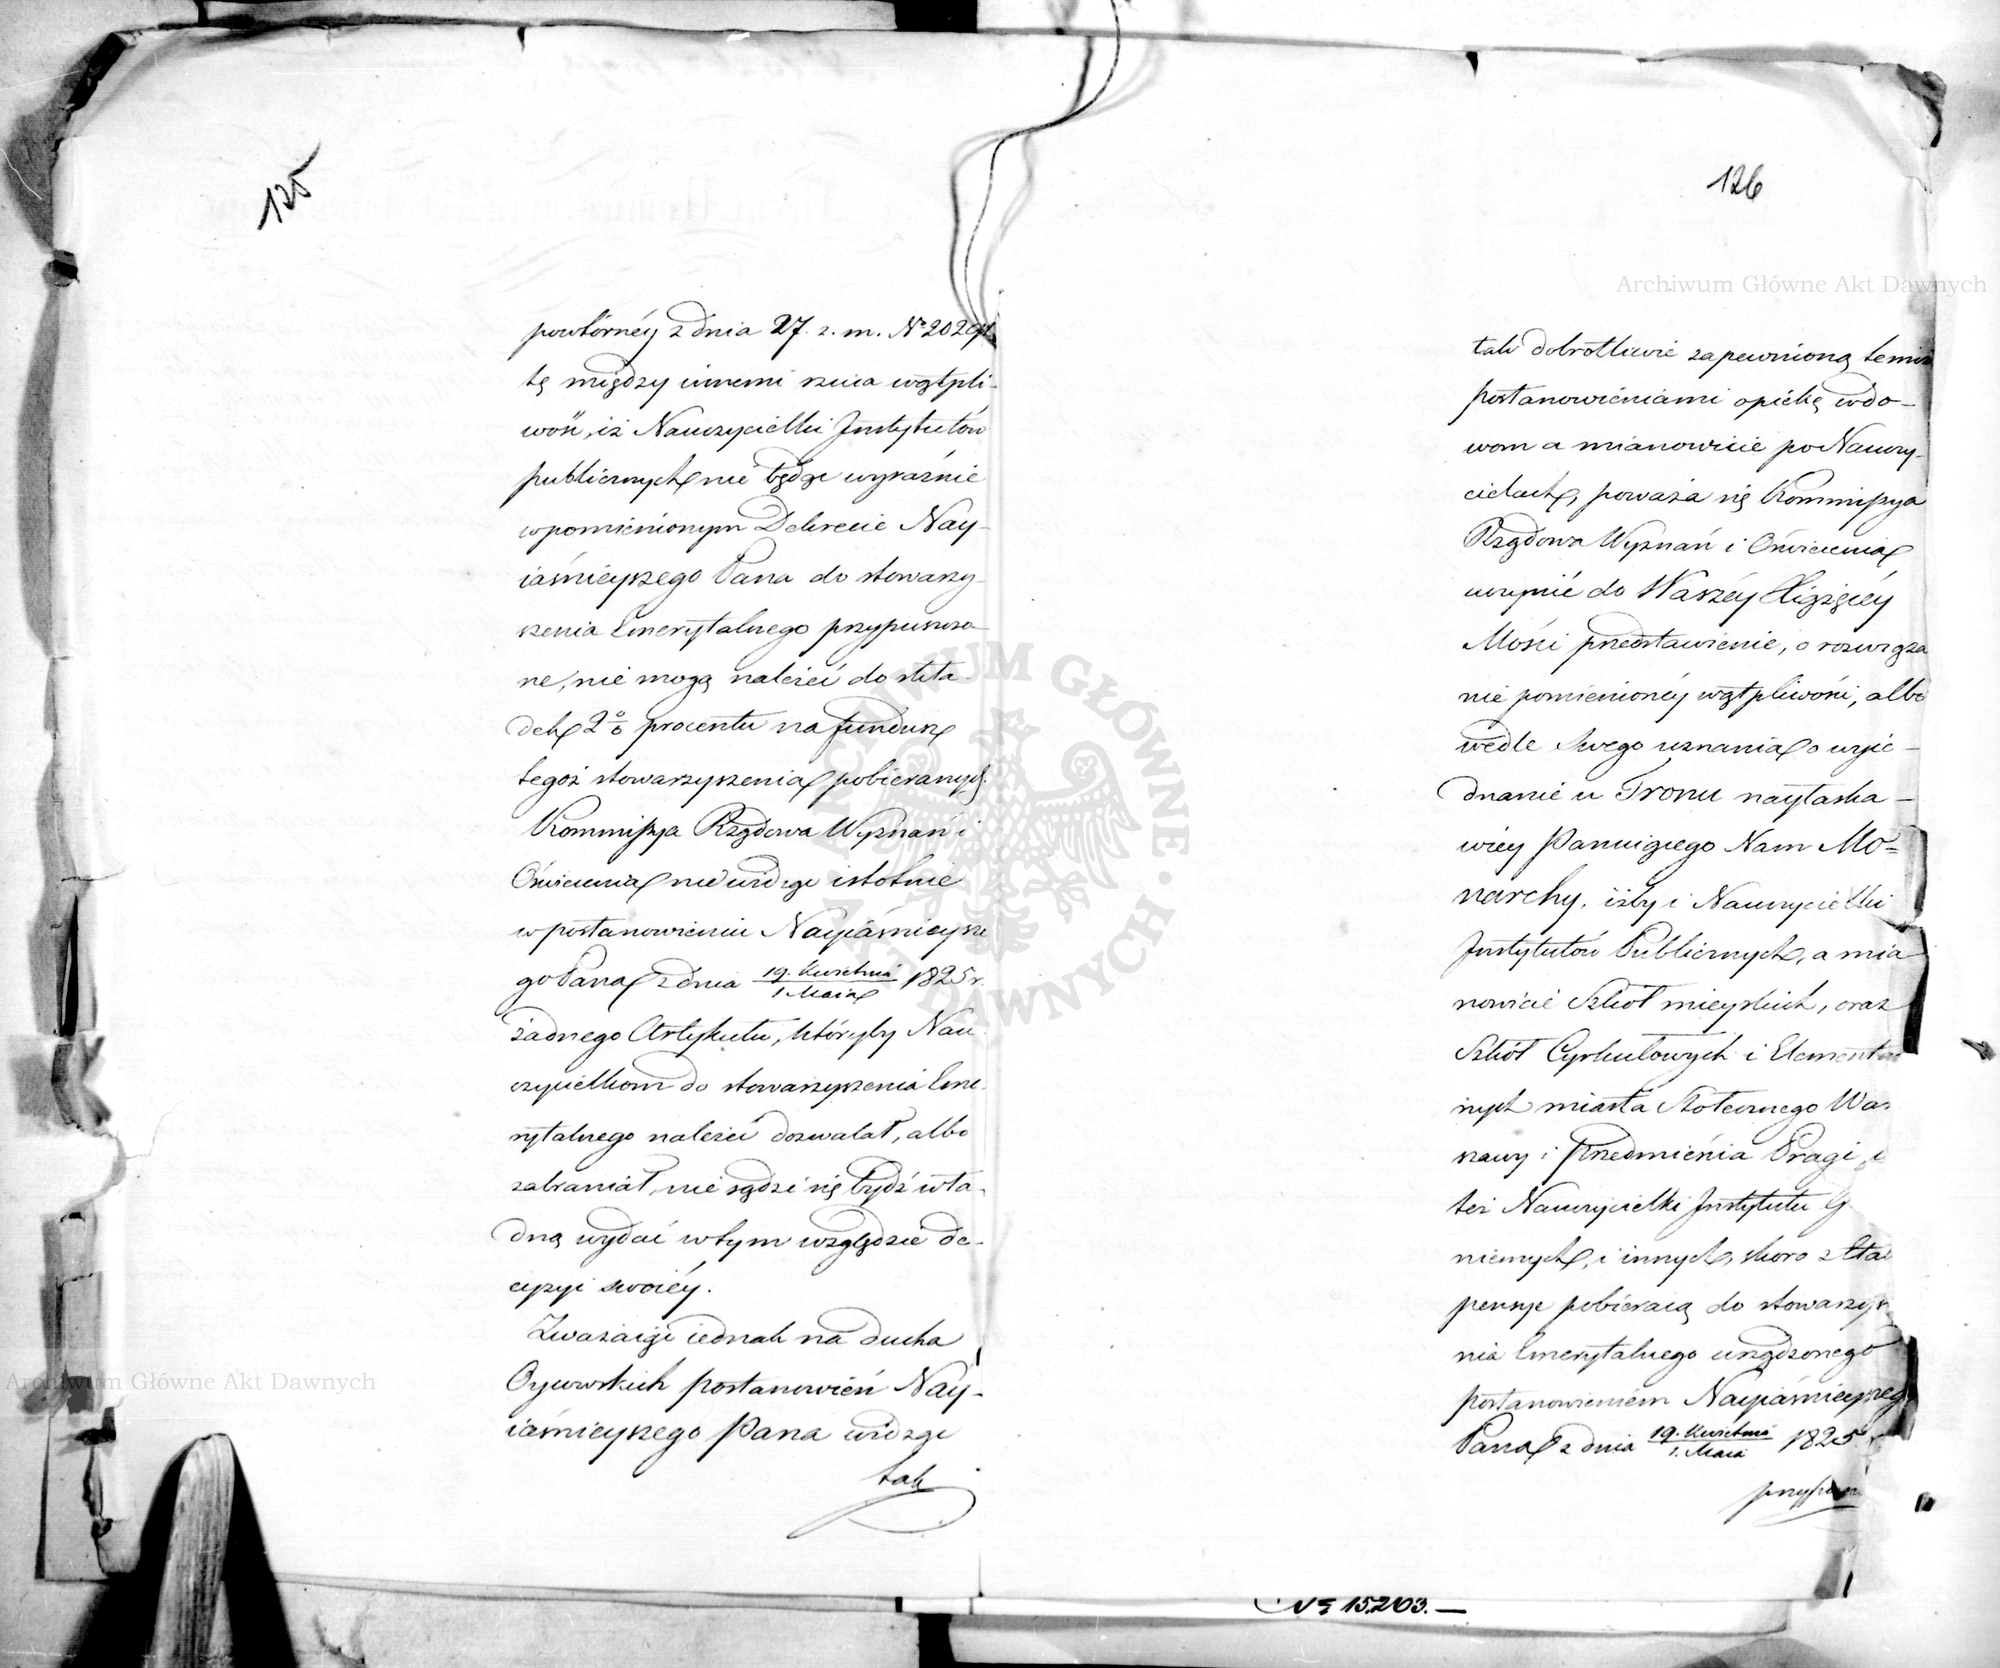 125
powtórnéy z dnia 27. z. m. Nº 20291.
tę między innemi rzuca wątpli-
wość, iż Nauczycielki Instytutów
publicznych nie będąc wyraźnie
wpomienionym Dekrecie Nay-
iaśnieyszego Pana do stowarzy-
szenia Emerytalnego przypuszczo-
ne, nie mogą należeć do skła-
dek 2 % procentu na fundusz
tegoż stowarzyszenia pobieranych.
Kommissya Rządowa Wyznań i
Oświecenia nie widząc istotnie
w postanowieniu Nayiaśnieysze
go Pana z dnia 19. Kwietnia / 1 Maia 1825 r.
żadnego Artykułu, któryby Nau-
czycielkom do stowarzyszenia Eme-
rytalnego należeć dozwalał, albo
zabraniał, nie sądzi się bydź wła-
dną wydać w tym względzie de-
cyzyi swoiéy.
Zważaiąc iednak na ducha
Oycowskich postanowień Nay-
iaśnieyszego Pana widząc
tak
126
tak dobrotliwie zapewnioną temiż
postanowieniami opiekę wdo-
wom a mianowicie po Nauczy-
cielach, poważa się Kommissya
Rządowa Wyznań i Oświecenia
uczynić do Waszéy Xiążęcéy
Mości przedstawienie, o rozwiąza
nie pomienionéy wątpliwości, albo
wedle Swego uznania o wyie-
dnanie u Tronu nayłaska-
wiéy Panuiącego Nam Mo-
narchy, iżby i Nauczycielki
Instytutów Publicznych, a mia
nowicie Szkół mieyskich, oraz
Szkół Cyrkułowych i Elementar
nych miasta Stołecznego War
szawy i Przedmieścia Pragi,
też Nauczycielki Instytutu G
niemych, i innych, skoro z Eta
pensye pobieraią do stowarzysz
nia Emerytalnego urządzonego
postanowieniem Nayiaśnieyszego
Pana z dnia 19. Kwietnia / 1. Maia 1825 r
przypusz
Nº 15,203.—
Archiwum Główne Akt Dawnych
Archiwum Główne Akt Dawnych
ARCHIWUM GŁÓWNE AKT DAWNYCH